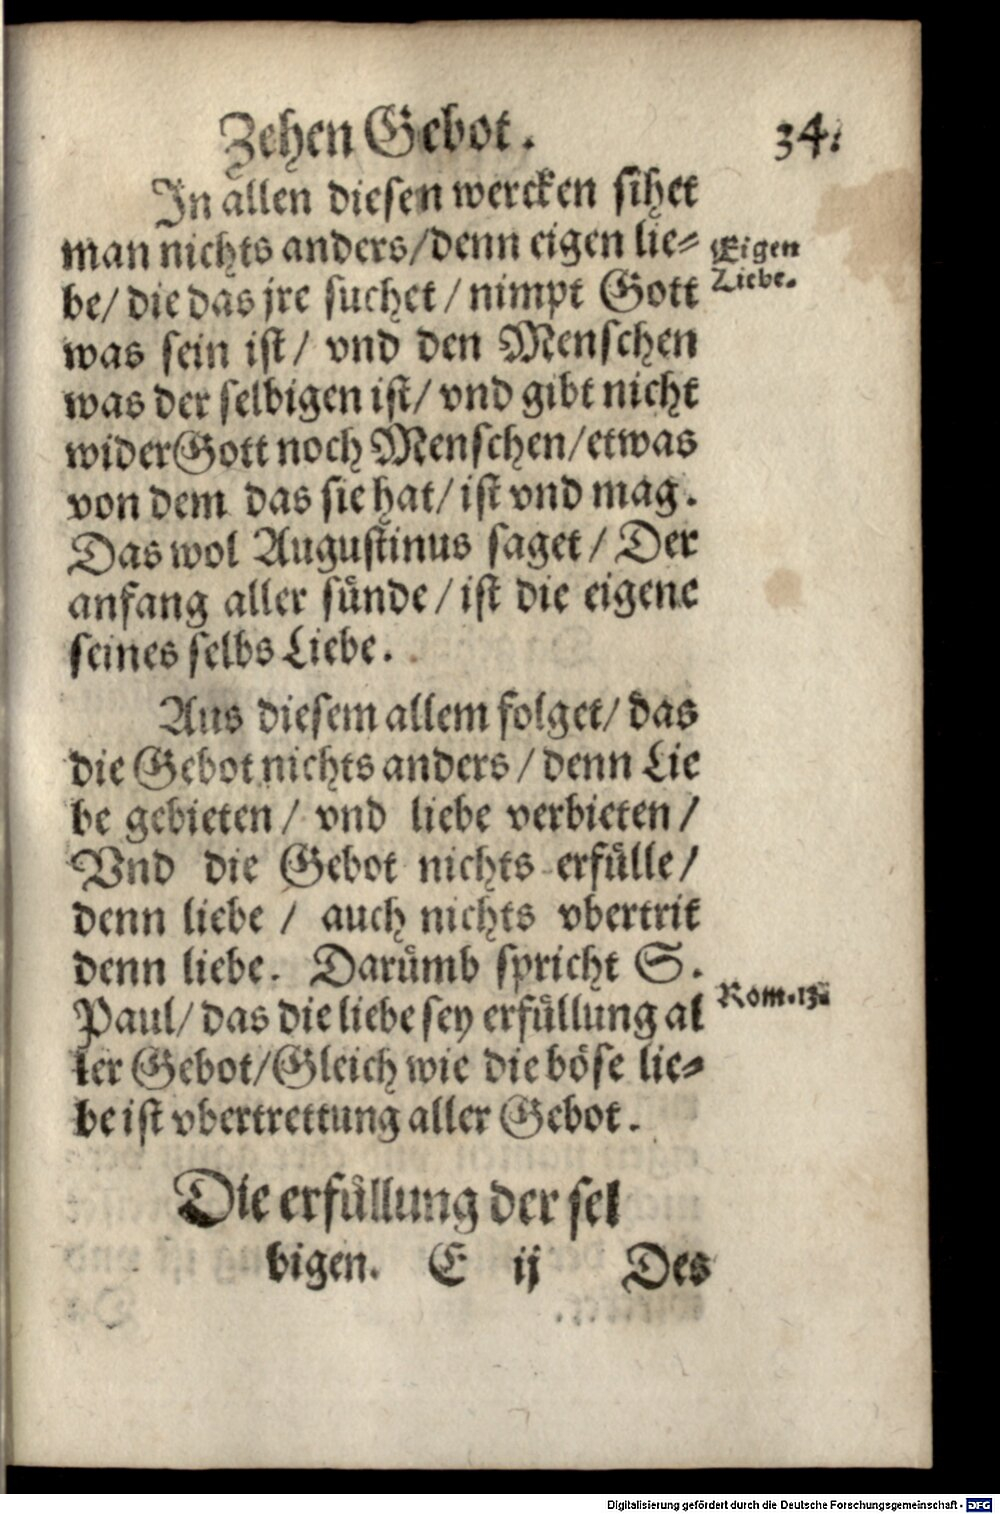 Zehen Gebot. 34.
In allen diesen wercken sihet
man nichts anders/denn eigen lie-
Eigen
be/ die das jre suchet / nimpt Gott
Liebe.
was sein ist/ vnd den Menschen
was der selbigen ist/ vnd gibt nicht
widerGott noch Menschen/etwas
von dem das sie hat/ ist vnd mag.
Das wol Augustinus saget / Der
anfang aller sünde / ist die eigene
seines selbs Liebe.
Aus diesem allem folget/ das
die Gebot nichts anders / denn Lie
be gebieten / vnd liebe verbieten /
Vnd die Gebot nichts erfülle/
denn liebe / auch nichts vbertrit
denn liebe. Darümb spricht S.
Rom.13.
Paul/ das die liebe sey erfüllung al
ler Gebot/Gleich wie die böse lie-
be ist vbertrettung aller Gebot.
Die erfüllung der sel
bigen. E ij Des
Digitalisierung gefördert durch die Deutsche Forschungsgemeinschaft - DFG